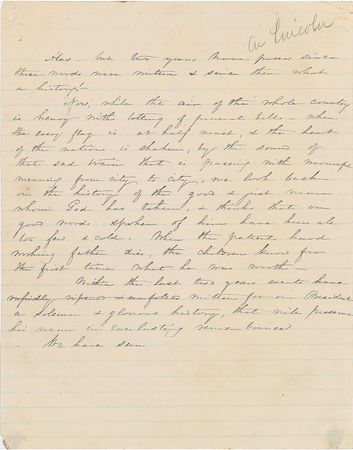 on Lincoln
Alas — but two years have passed since
these words were written & since then what
a history!
Now, while the air of the whole country
is heavy with tolling of funeral bells — when
the every flag is at half mast, & the heart
of the nation is shaken, by the sound of
that sad train that is passing with
mourning from city to city, we look back
on the history of the good & just man
whom God has taken, & think that our
good words spoken of him have been all
too few & cold. When the patient, hard
working father dies, the children know for
the first time what he was worth —
Within the last two years events have
rapidly ripened & unfolded written for our President
a solemn & glorious history, that will preserve
his name in Everlasting remembrance
We have seen